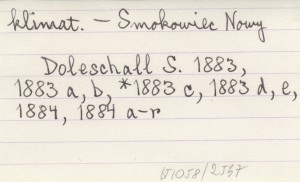 klimat. – Smokowiec Nowy
Doleschall S. 1883,
1883 a, b, *1883 c, 1883 d, e,
1884, 1884 a–r